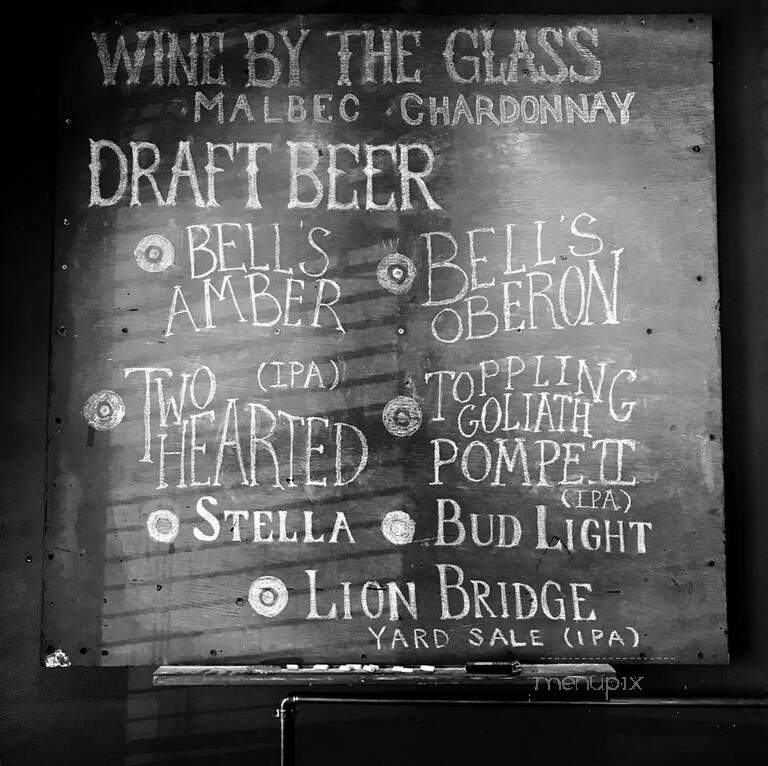 WINE BY THE GLASS
MALBEC CHARDONNAY
DRAFT BEER
BELL'S
AMBER
BELL'S
OBERON
TWO (IPA)
HEARTED
TOPPLING
GOLIATH
POMPEII
(IPA)
STELLA
BUD LIGHT
LION BRIDGE
YARD SALE (IPA)
menupix